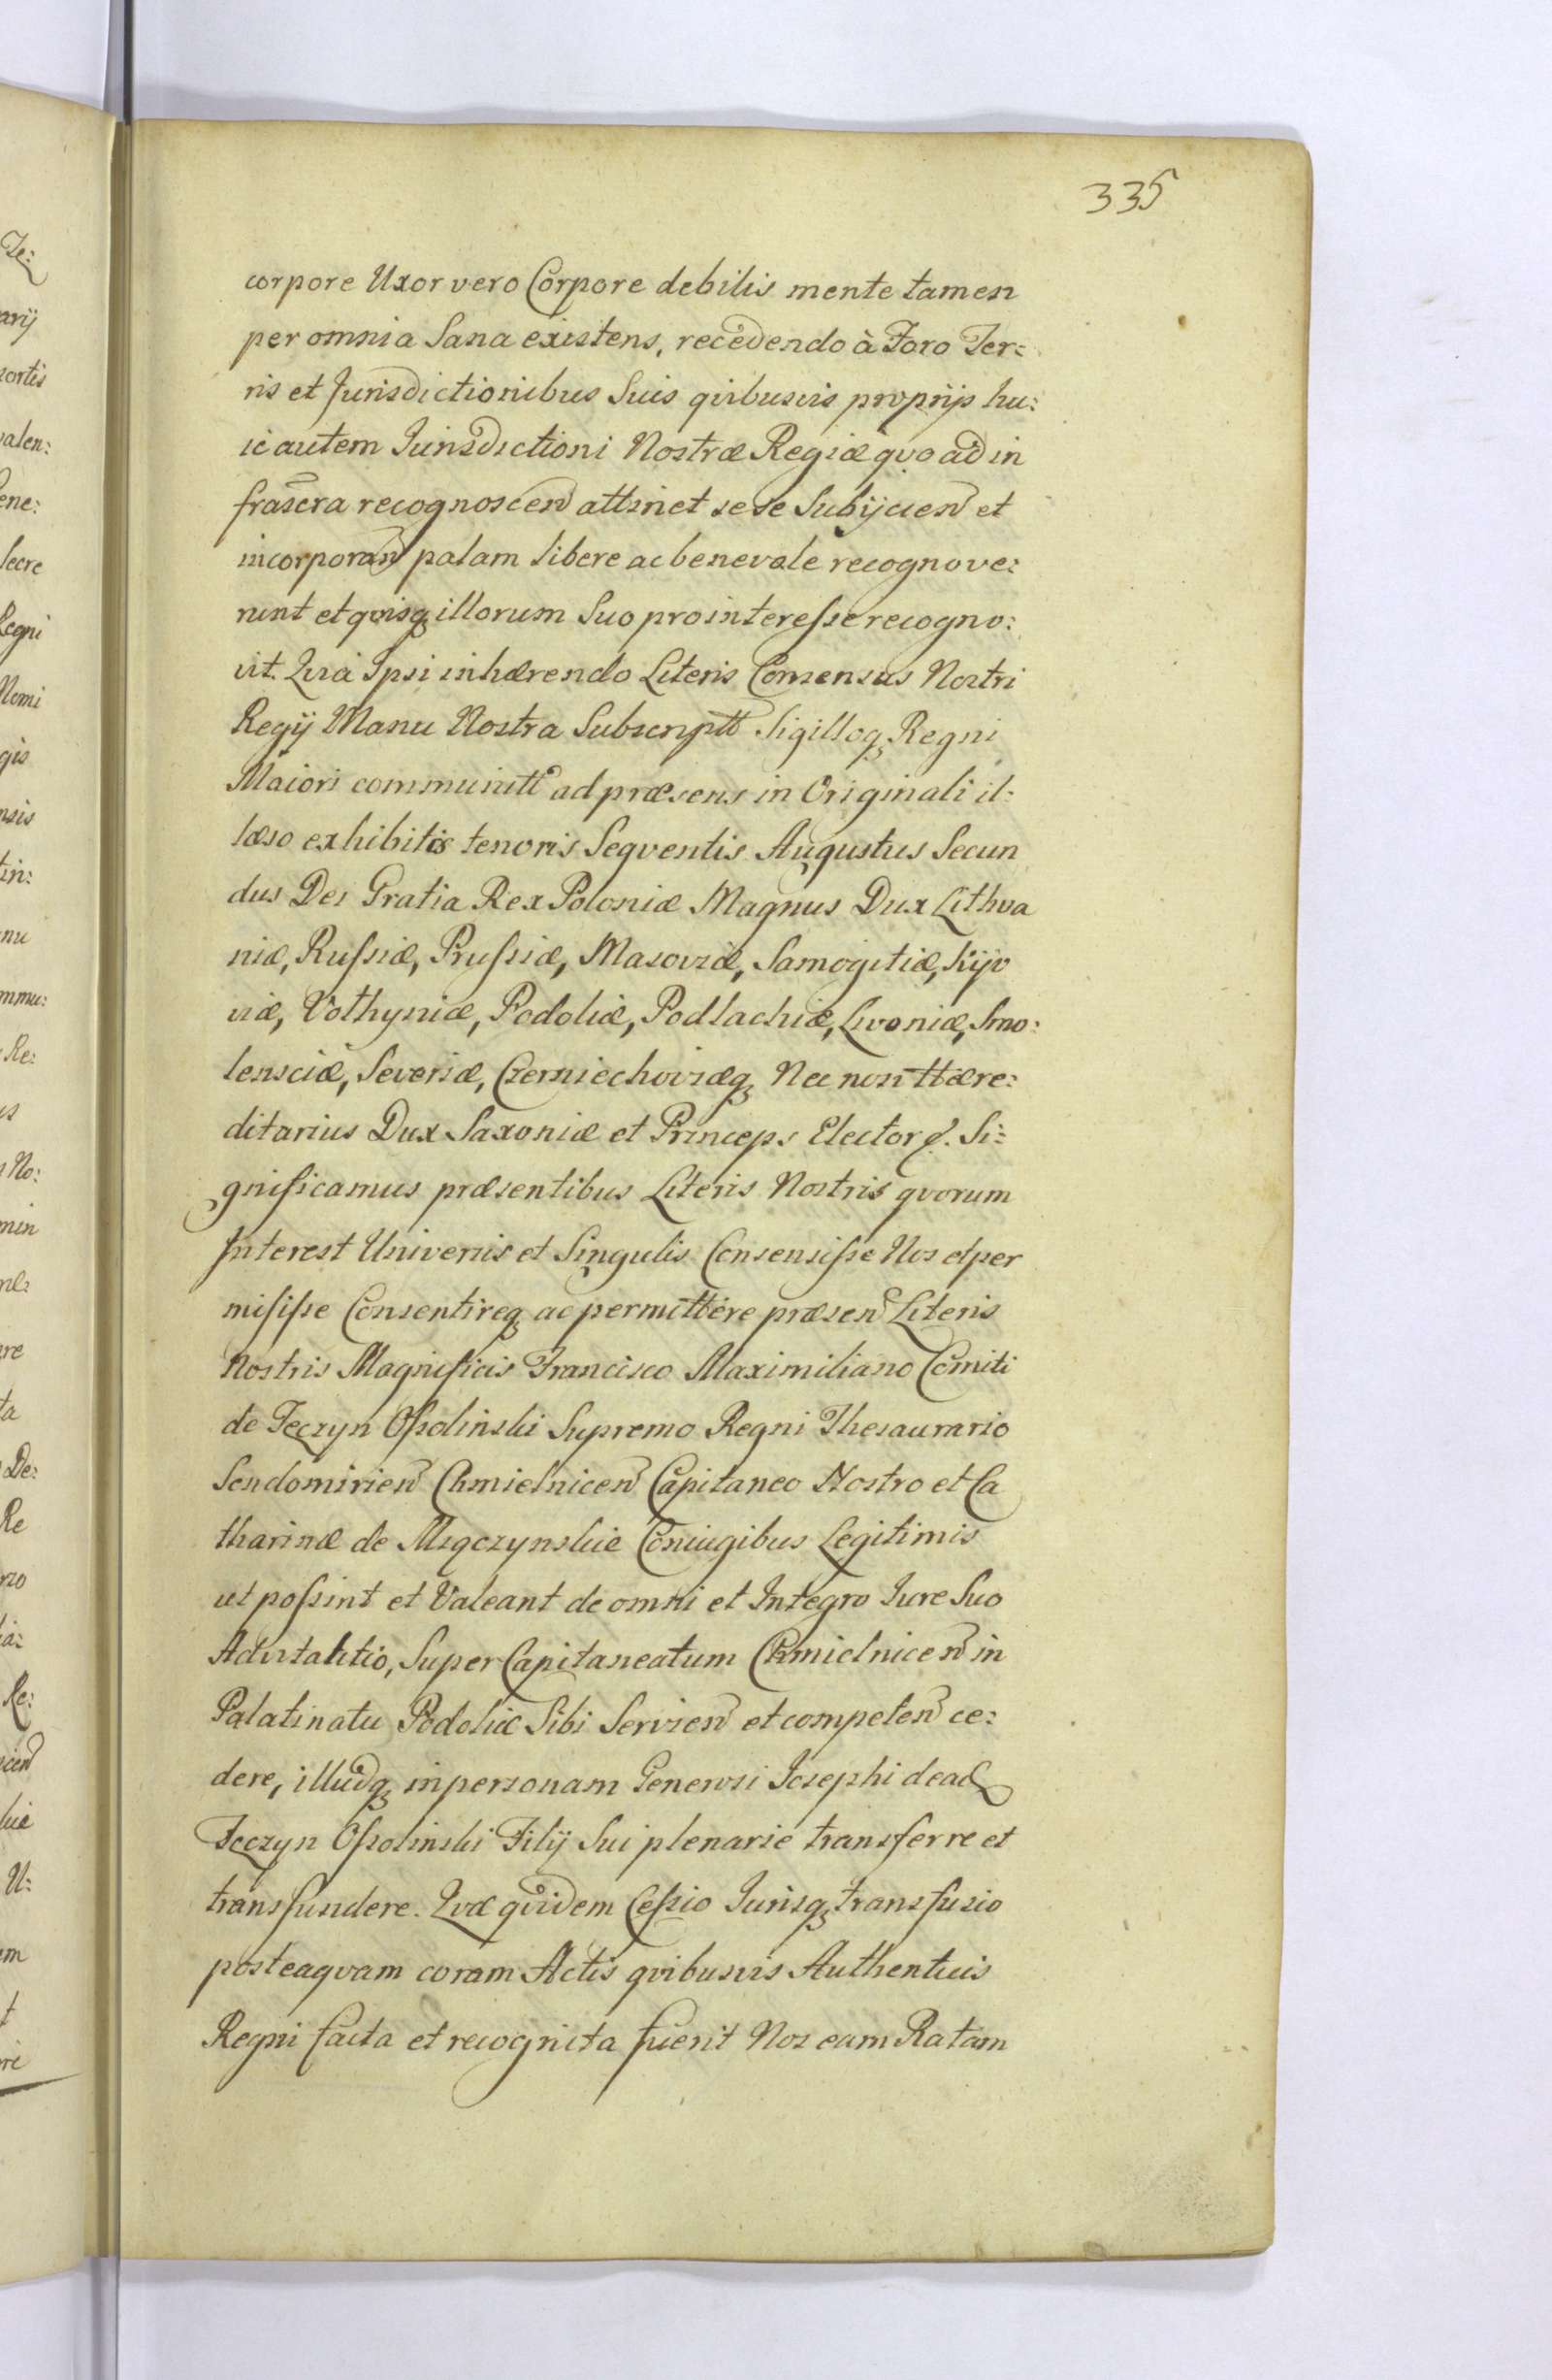 335
corpore Uxor vero Corpore debilis mente tamen
per omnia Sana existens, recedendo à Foro Ter:
ris et Jurisdictionibus Suis qvibusvis proprijs hu:
ic autem Jurisdictioni Nostræ Regiæ qvo ad in
frascra recognoscen attinet sese Subijcien et
incorporan palam libere ac benevole recognove:
runt et qvisq illorum Suo pro interesse recogno:
vit. Qvia Ipsi inhærendo Literis Consensus Nostri
Regij Manu Nostra Subscriptt Sigilloq Regni
Maiori communitt ad præsens in Originali il:
læso exhibitis tenoris Seqventis Augustus Secun
dus Dei Gratia Rex Poloniæ Magnus Dux Lithva
niæ, Russiæ, Prussiæ, Masoviæ, Samogitiæ, Kijo
viæ, Volhyniæ, Podoliæ, Podlachiæ, Livoniæ, Smo:
lensciæ, Severiæ, Czerniechoviæq Nec non Hære:
ditarius Dux Saxoniæ et Princeps Elector &. Si:
gnificamus præsentibus Literis Nostris qvorum
Interest Universis et Singulis Consensisse Nos et per
misisse Consentireq ac permittere præsen Literis
Nostris Magnificis Francisco Maximiliano Comiti
de Tęczyn Ossolinski Supremo Regni Thesaurario
Sendomirien Chmielnicen Capitaneo Nostro et Ca
tharinæ de Mączynskie Coniugibus Legitimis
ut possint et Valeant de omni et Integro Jure Suo
Advitalitio, Super Capitaneatum Chmielnicen in
Palatinatu Podoliæ Sibi Servien et competen ce:
dere, illudq in personam Generosi Josephi de ead
Tęczyn Ossolinski Filij Sui plenarie transferre et
transfundere. Qvæ qvidem Cessio Jurisq transfusio
posteaqvam coram Actis qvibusvis Authenticis
Regni facta et recognita fuerit Nos eam Ratam
Te:
arij
sortis
valen:
ene:
Regni
Nomi
gis
nsis
tin:
nu
mmu:
Re:
No:
min
re
ta
De:
Re
Re:
cien
U:
em
t
re